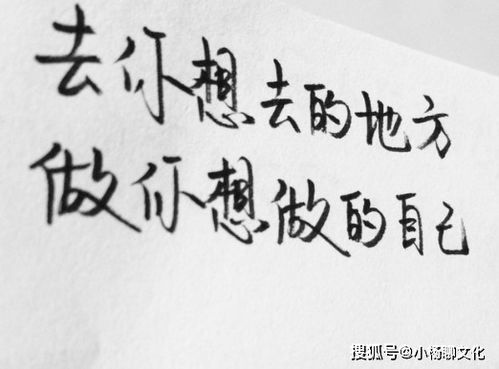 去你想去的地方
做你想做的自己
搜狐号@小杨聊文化